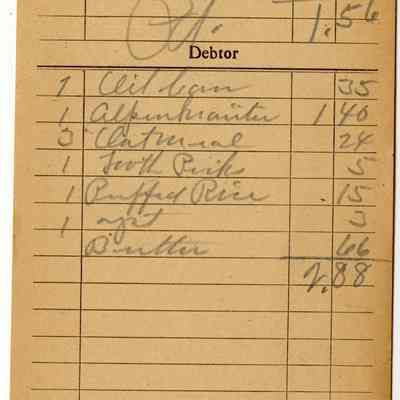 Pd. 1.56
Debtor
1 Oil Can 35
1 1 40
3 Oatmeal 24
1 Tooth Picks 5
1 Puffed Rice .15
1 3
Butter 66
2.88